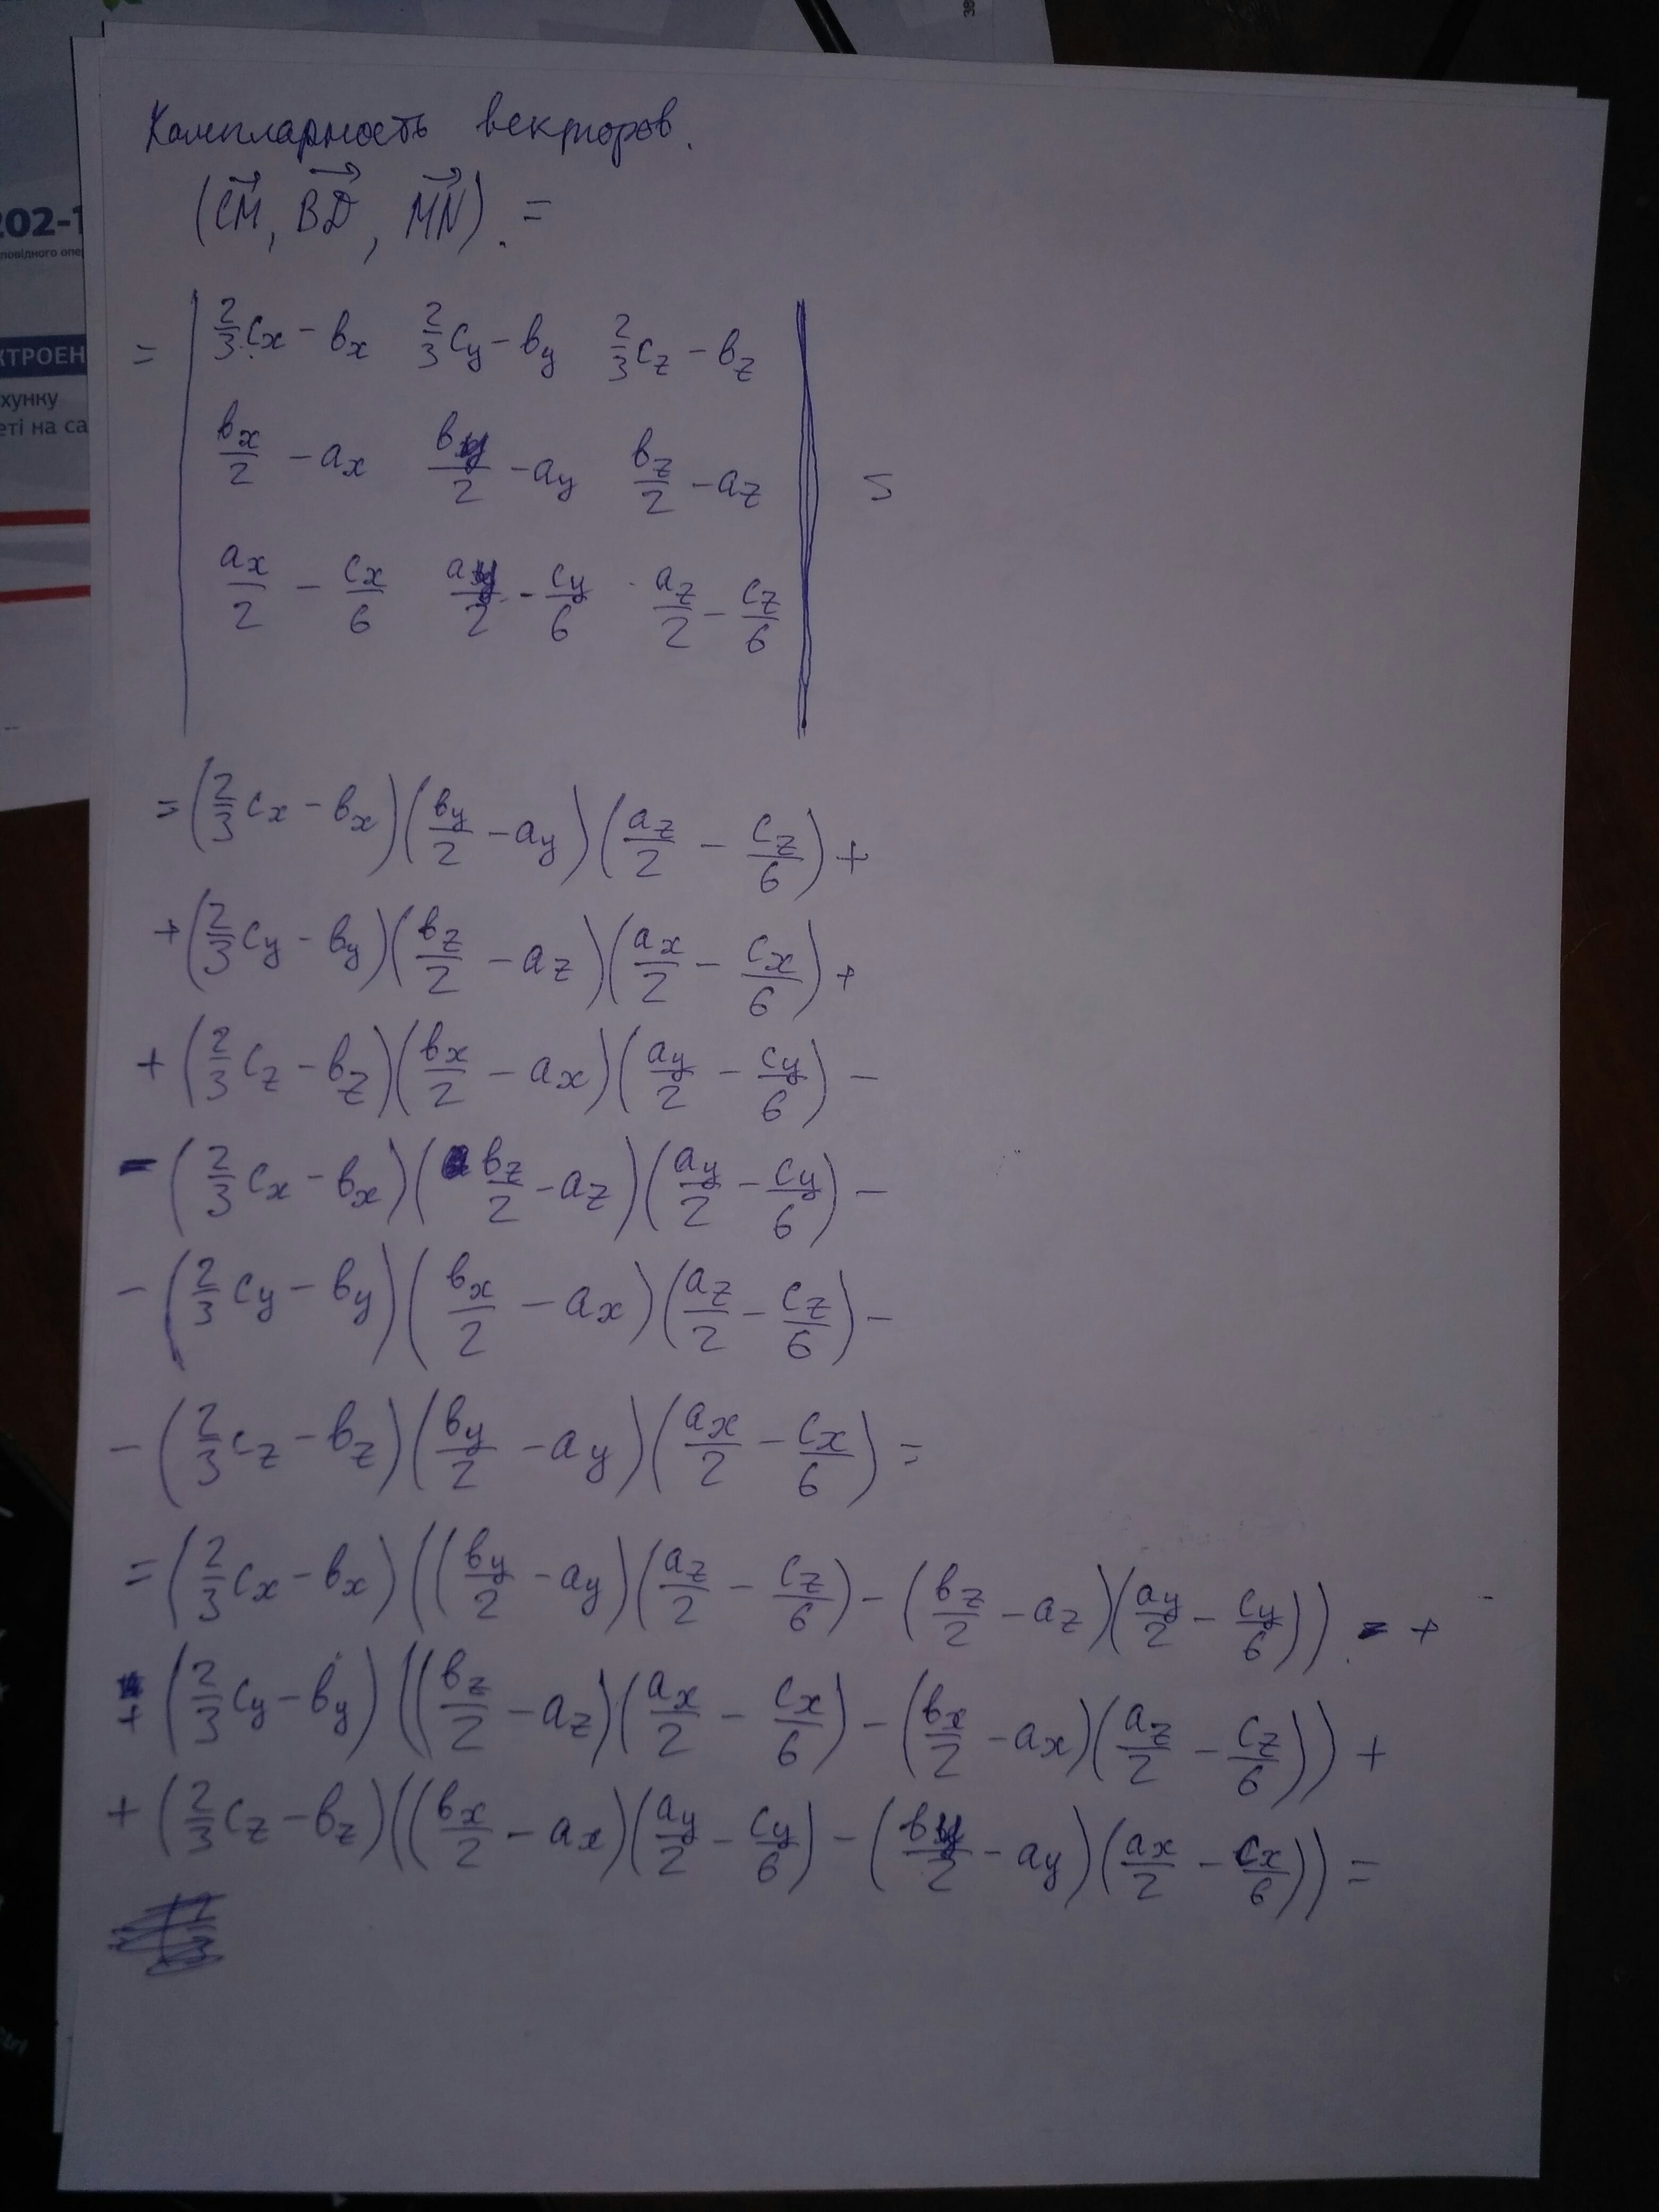 Компларность векторов.
(CM, BD, MN). =
= | 2/3 Cx - Bx   2/3 Cy - By   2/3 Cz - Bz |
| Bx/2 - ax   By/2 - ay   Bz/2 - az | =
| ax/2 - Cx/6   ay/2 - Cy/6   az/2 - Cz/6 |
= (2/3 Cx - Bx)(By/2 - ay)(az/2 - Cz/6) +
+ (2/3 Cy - By)(Bz/2 - az)(ax/2 - Cx/6) +
+ (2/3 Cz - Bz)(Bx/2 - ax)(ay/2 - Cy/6) -
- (2/3 Cx - Bx)(Bz/2 - az)(ay/2 - Cy/6) -
- (2/3 Cy - By)(Bx/2 - ax)(az/2 - Cz/6) -
- (2/3 Cz - Bz)(By/2 - ay)(ax/2 - Cx/6) =
= (2/3 Cx - Bx)((By/2 - ay)(az/2 - Cz/6) - (Bz/2 - az)(ay/2 - Cy/6)) +
+ (2/3 Cy - By)((Bz/2 - az)(ax/2 - Cx/6) - (Bx/2 - ax)(az/2 - Cz/6)) +
+ (2/3 Cz - Bz)((Bx/2 - ax)(ay/2 - Cy/6) - (By/2 - ay)(ax/2 - Cx/6)) =
202-1
повідного опе
КТРОЕН
хунку
еті на са
38